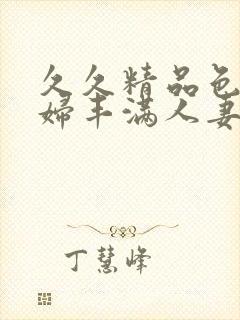 久久精品色
婦丰满人妻
丁慧峰